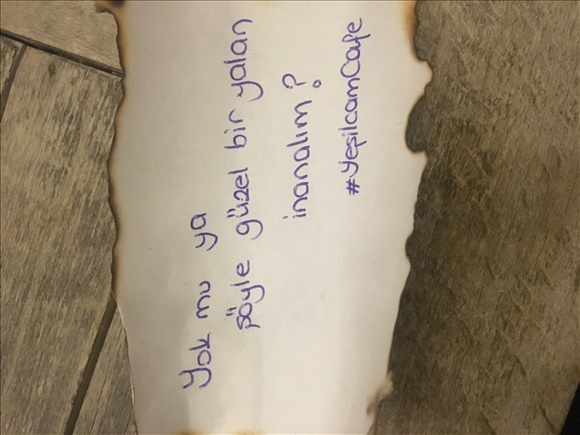 Yok mu ya
şöyle güzel bir yalan
inanalım?
#YeşilcamCafe